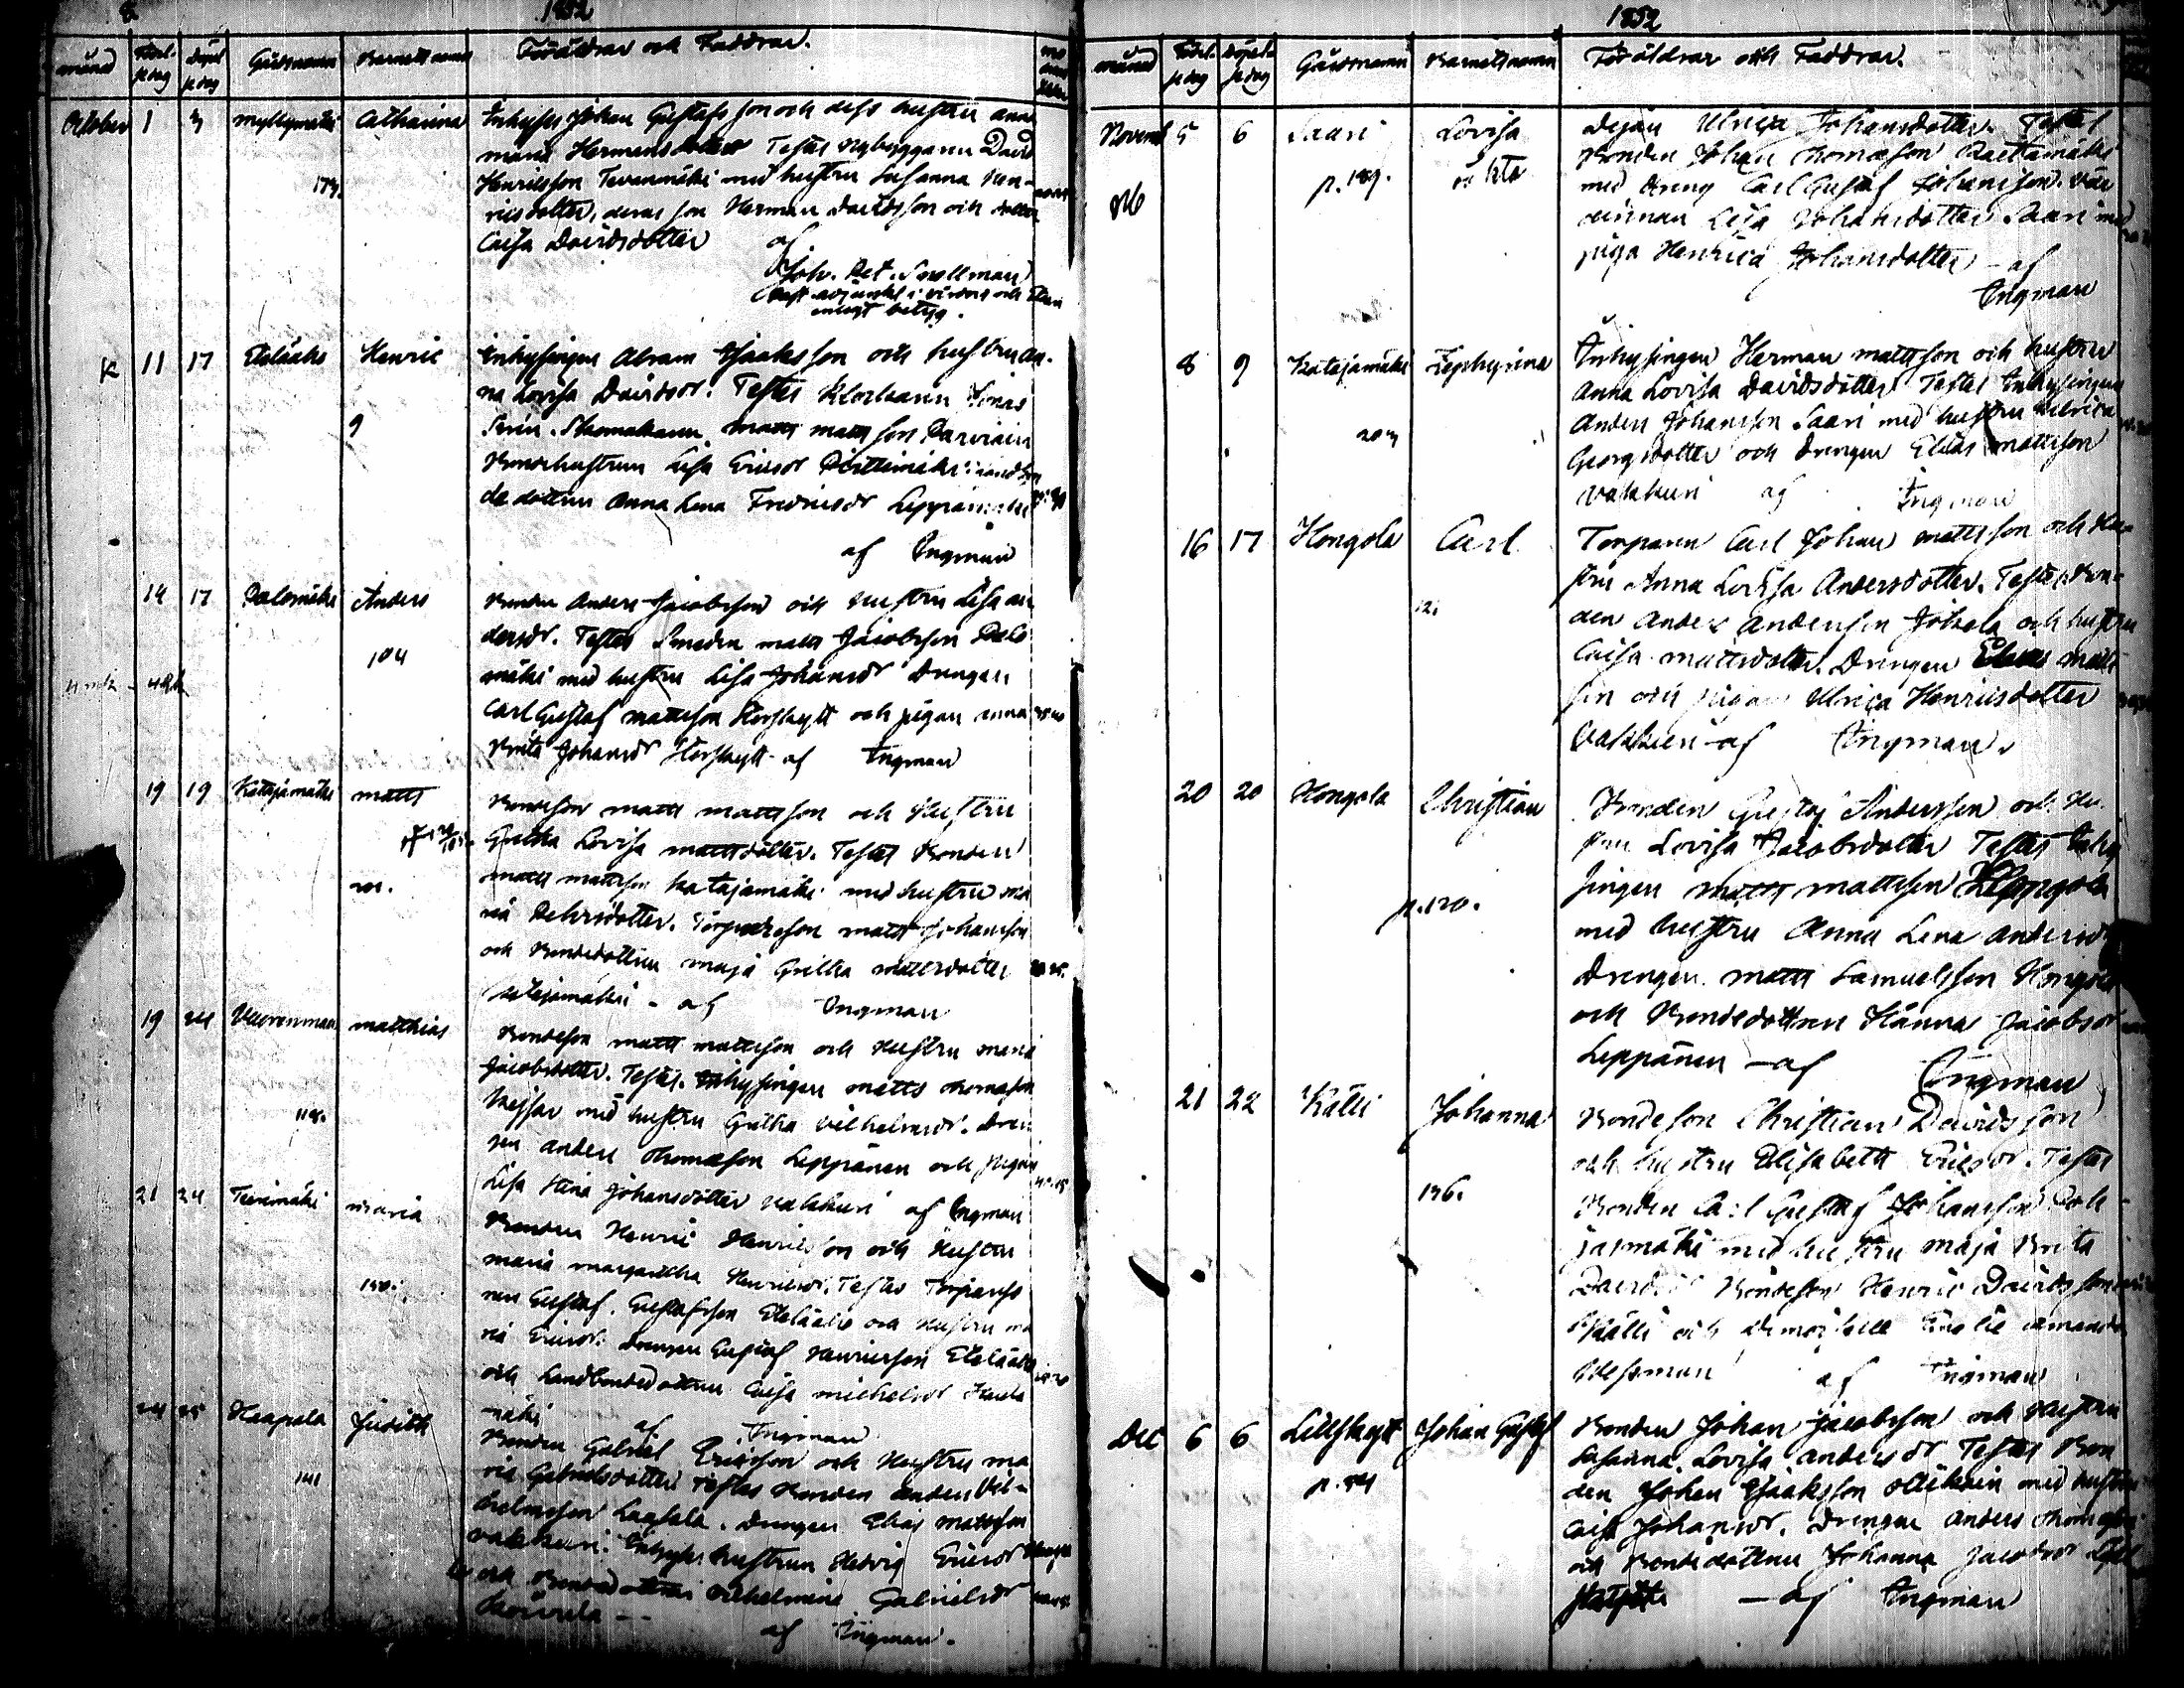 8
1852
månad Född. Döpt Gårdsnamn Barnets namn Föräldrar och Faddrar.
p dag p dag
October 1 3 Myllymäki Catharina Inhyses Johan Gustafsson och dess hustru Anna
Maria Hermansdotter Testes Nybyggaren David
173. Henricsson Tevanmäki med hustru Susanna Hen-
ricsdotter, deras son Herman Davidsson och dotter
Caisa Davidsdotter af
Joh. Pet. Snellman
Past. adjunct i
enligt betyg.
K 11 17 Etelääho Henric Inhysingen Abram Isaaksson och hustru An-
na Lovisa Davidsdr. Testes Klockaren Jonas
9 Skomakaren Matts Mattsson Parviain
Bondehustrun Lisa Ericsdr
dedottren Anna Lena Fredricsdr Leppämäki
af Ingman
14 17 Palomäki Anders Bonden Anders Jacobsson och hustru Lisa An-
dersdr. Testes Smeden Matts Jacobsson Palo
104 mäki med hustru Lisa Johansdr Drengen
Carl Gustaf Mattsson Horskytt och pigan Anna
Brita Johansdr Horskytt af Ingman
19 19 Katajamäki Matts Bondeson Matts Mattsson och hustru
Gretha Lovisa Mattsdotter. Testes Bonden
Matts Mattsson Katajamäki med hustru Ma
ria Pehrsdotter. Torpareson Matts Johansson
och Bondedottren Maja Gretha Mattsdotter
Katajamäki - af Ingman
19 24 Matthias Bondeson Matts Mattsson och hustru Maria
Jacobsdotter. Testes. Inhysingen Matts Thomasson
118. med hustru Gretha Vilhelmsdr. Dren
gen Anders Thomasson Leppänen och pigan
Lisa Stina Johansdotter Valkkuri af Ingman
21 24 Maria Bonden Henric Henricsson och hustru
Maria Margaretha Henricsdr. Testes
150. Gustaf Gustafsson Etelääho och hustru Ma
ria Ericsdr. Drengen Gustaf Henricsson Etelääho
och Landbondedottren Caisa Michelsdr
mäki af Ingman
24 25 Haapala Judith Bonden Gabriel Ericsson och Hustru Ma
ria Gabrielsdotter Testes Bonden Anders Vil-
141 helmsson Laasala. Drengen Elias Mattsson
Valkkuri. Inhyses hustrun Hedvig Ericsdr
och Bondedottren Vilhelmina Gabrielsdr
af Ingman.
1852
månad Född. Döpt Gårdsnamn Barnets namn Föräldrar och Faddrar.
p dag p dag
Novemb 5 6 Saari Lovisa Pigan Ulrica Johansdotter. Testes
Bonden Johan Thomasson
p. 189. oäkta med dreng Carl Gustaf Johansson.
qvinnan Lisa Johansdotter Saari med
piga Henrica Johansdotter af
Ingman
8 9 Katajamäki Zephyrina Inhysingen Herman Mattsson och hustru
Anna Lovisa Davidsdotter Testes Inhysingen
203 Anders Johansson Saari med hustru Ulrica
Georgsdotter och Drengen Elias Mattsson
Valkkuri af Ingman
16 17 Hongola Carl Torparen Carl Johan Mattsson och Hu-
stru Anna Lovisa Andersdotter. Testes. Bon-
121 den Anders Andersson Jokela och hustru
Caisa Mattsdotter. Drengen Elias Matts
son och pigan Ulrica Henricsdotter
Valkkuri af Ingman.
20 20 Hongola Christian Bonden Gustaf Andersson och Hu-
stru Lovisa Jacobsdotter Testes Inhy
singen Matts Mattsson Hongola
p. 120. med hustru Anna Lena Andersdr
Drengen Matts Samuelsson Hongola
och Bondedottren Hanna Jacobsdr
Leppänen - af Ingman
21 22 Källi Johanna Bondeson Christian Davidsson
och hustru Elisabeth Ericsdr. Testes
136. Bonden Carl Gustaf Johansson Poh-
jasmäki med hustru Maja Brita
Davidsdr Bondeson Henric Davidsson
Källi och Demoiselle Emelie Amanda
Wessman af Ingman
Dec 6 6 Lillskytt Johan Gustaf Bonden Johan Jacobsson och Hustru
Susanna Lovisa Andersdr Testes Bon
p. 84 den Johan Isaaksson Ollikain med hustru
Caisa Johansdr. Drengen Anders Thomasson
och Bondedottren Johanna Jacobsdr Lill
skytt - af Ingman